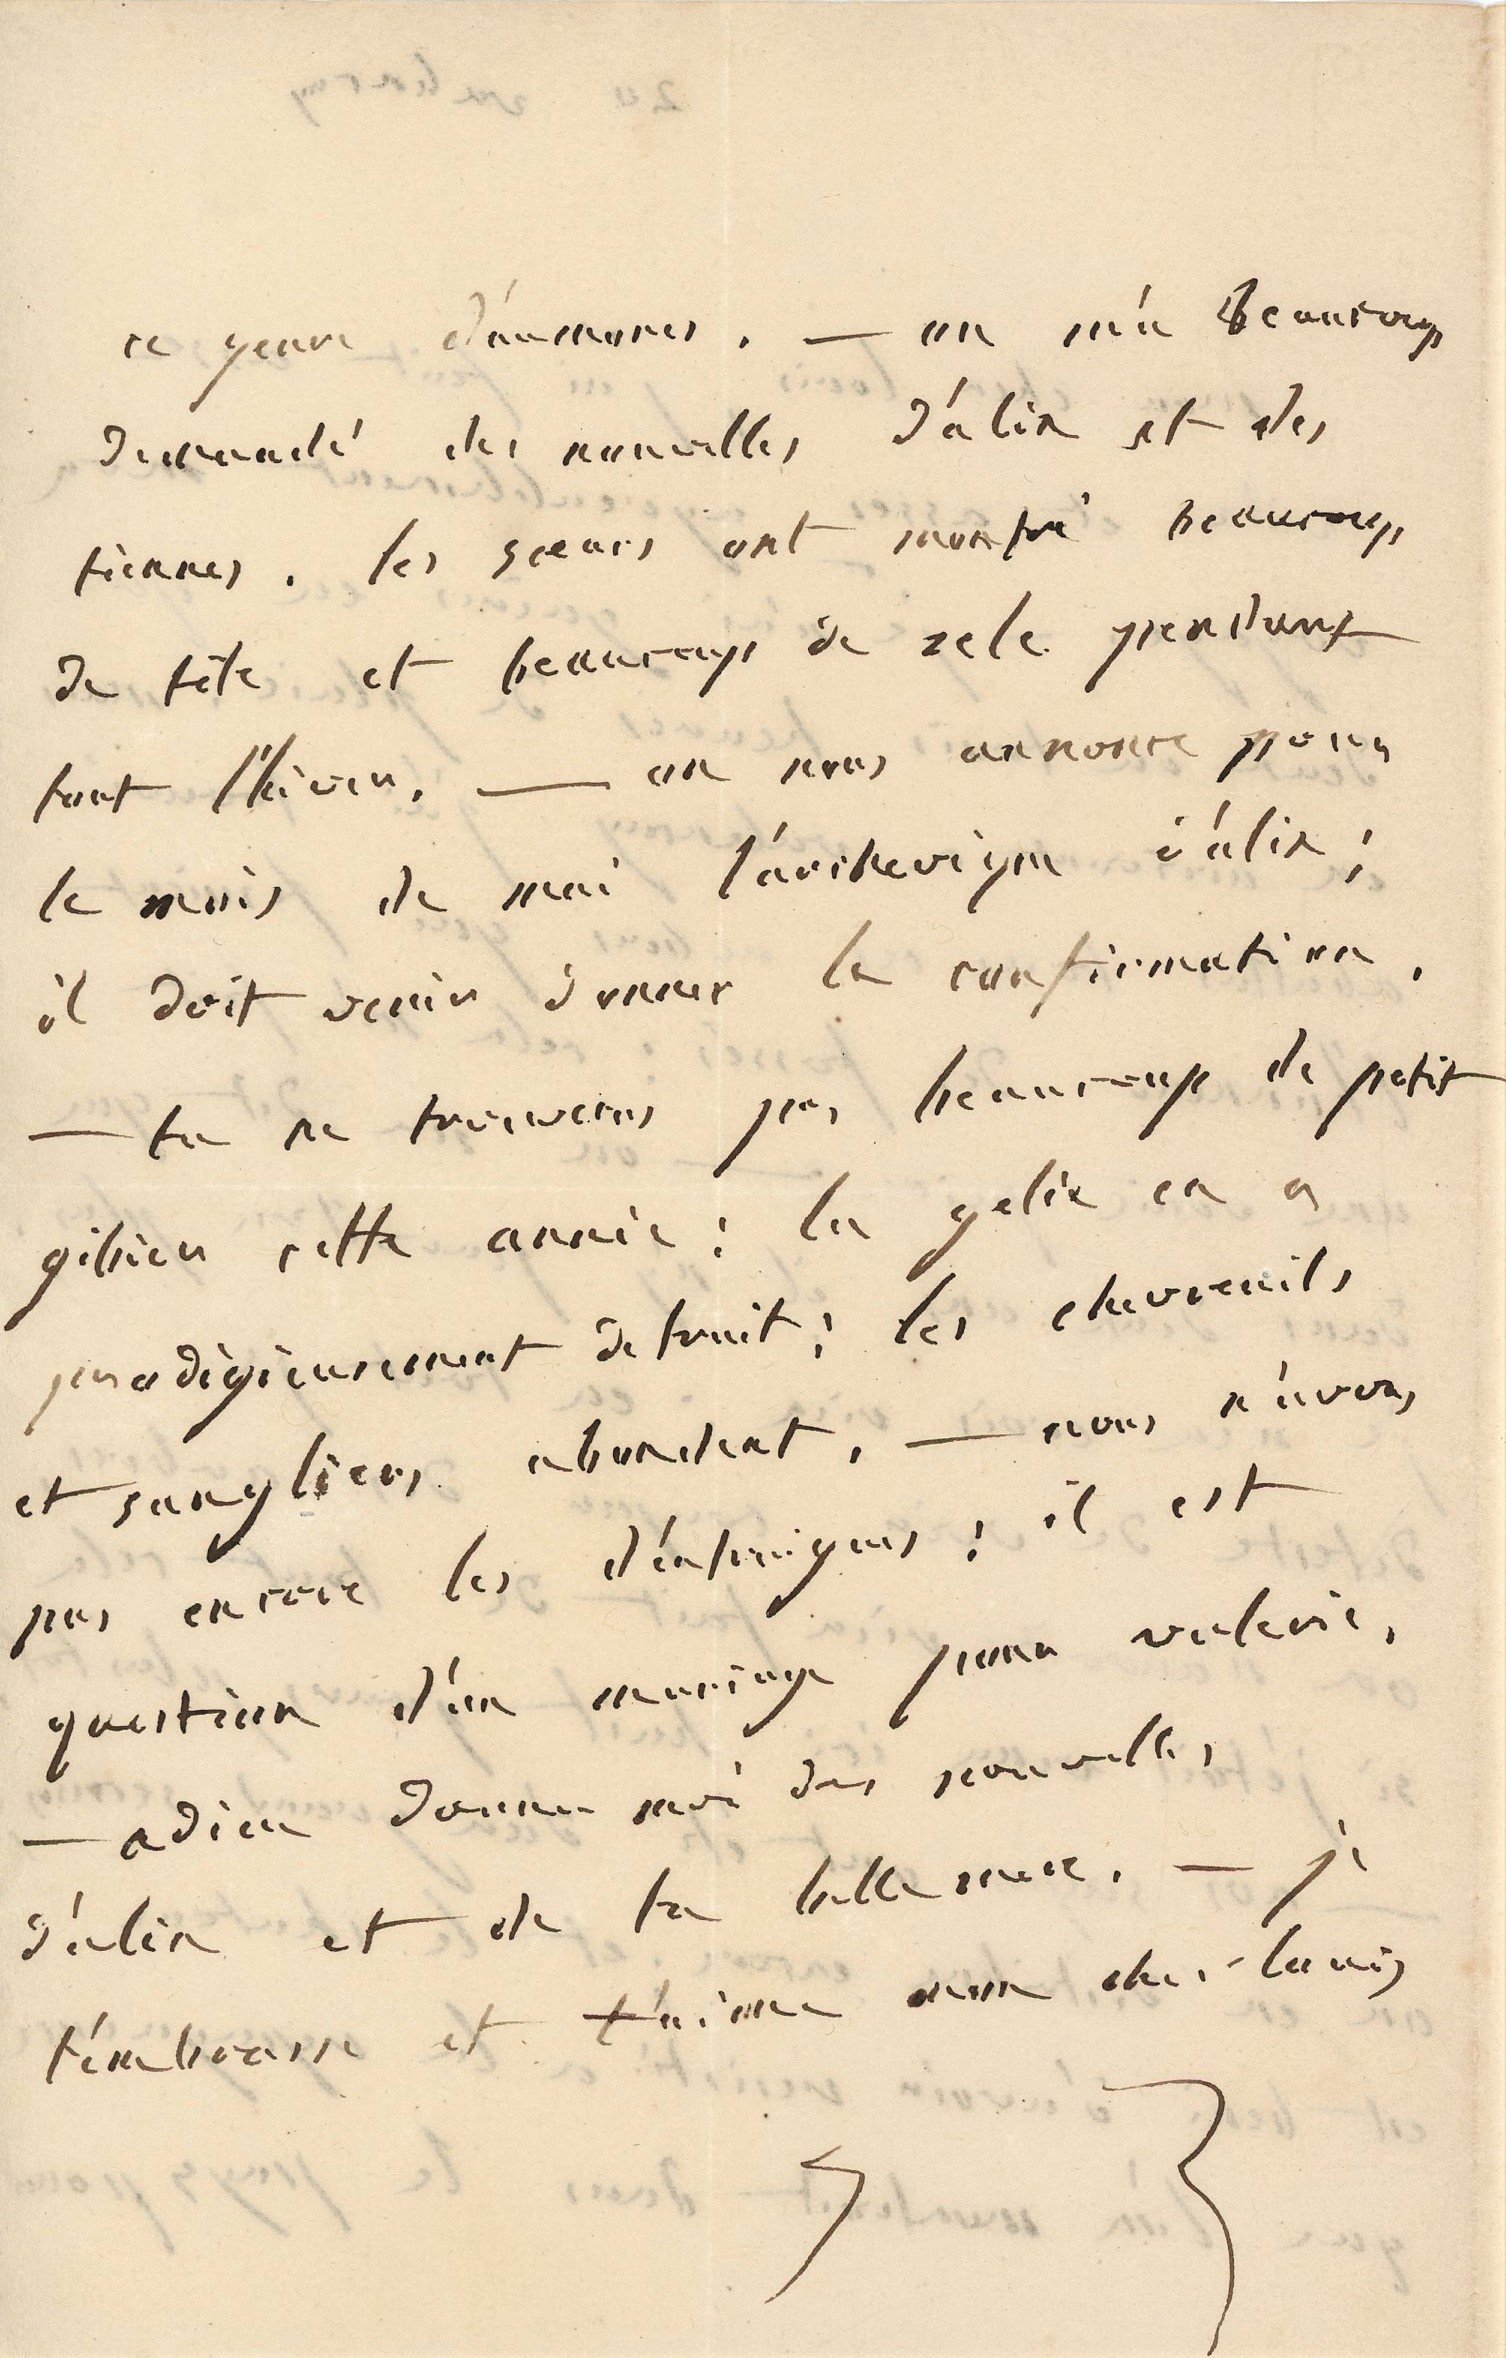 ce genre d'aumones. — on m'a Beaucoup
demandé des nouvelles d'alix et des
tiennes. les soeurs ont montré beaucoup
de tête et beaucoup de zele pendant
tout l'hiver. — on nous annonce pour
le mois de mai l'archeveque d'alix;
il doit venir donner la confirmation.
— tu ne trouveras pas beaucoup de petit
gibier cette année: la gelée en a
prodigieusement detruit; les chevreuils
et sangliers abondent. — nous n'avons
pas encore les : il est
question d'un mariage pour valerie.
— adieu donne moi des nouvelles
d'alix et de ta belle mere. — je
t'embrasse et t'aime mon cher louis